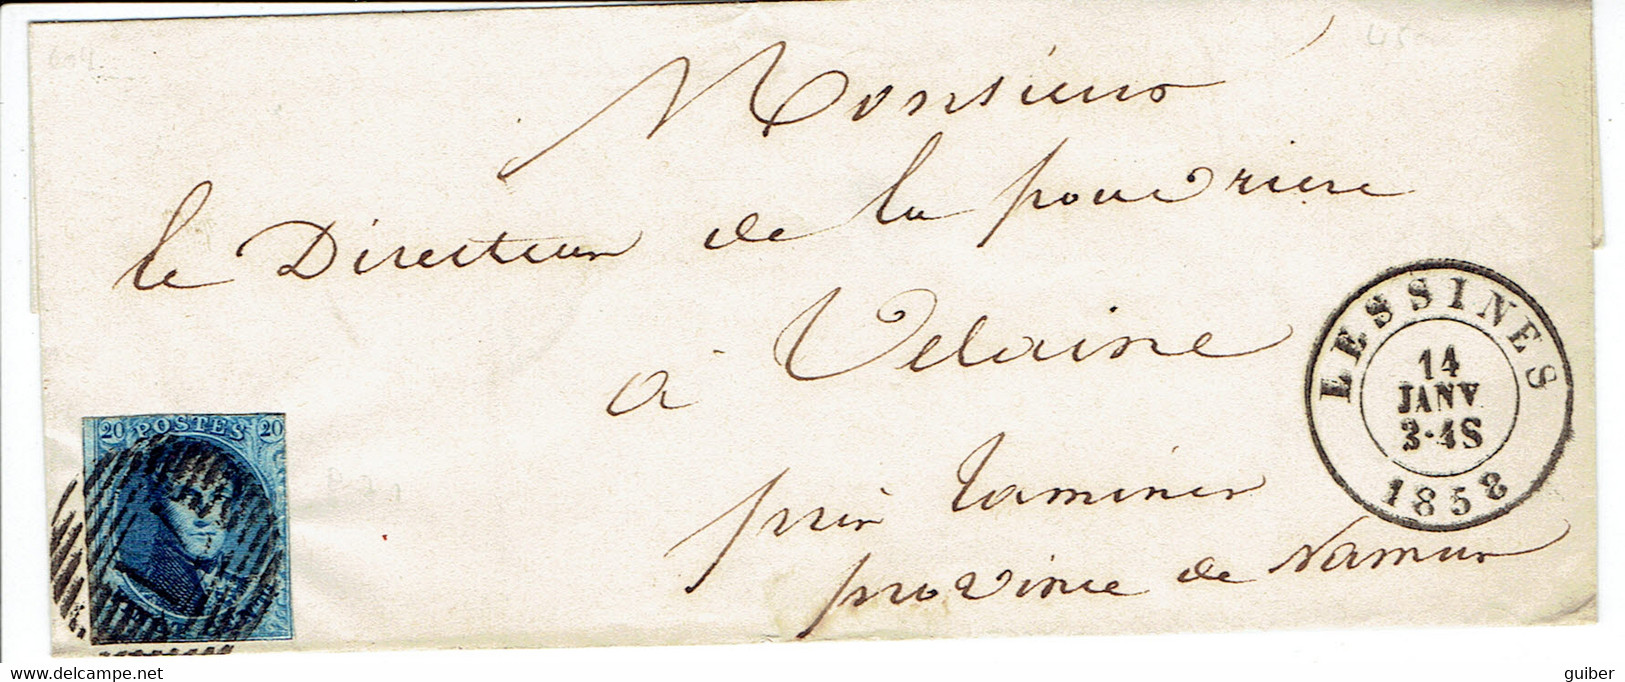 Monsieur
le Directeur de la poudrière
à Velaine
près Tamines
province de Namur
LESSINES
14
JANV
3-4S
1858
20 POSTES 20
guiber